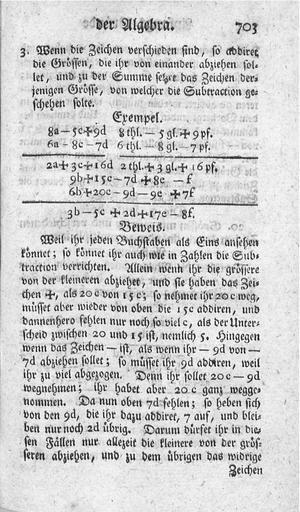 der Algebra. 703
3. Wenn die Zeichen verschieden sind, so addiret
die Grössen, die ihr von einander abziehen sol-
let, und zu der Summe setzet das Zeichen der-
jenigen Grösse, von welcher die Subtraction ge-
schehen solte.
Exempel.
8a — 5c + 9d 8 thl. — 5 gl. + 9 pf.
6a — 8c — 7d 6 thl. — 8 gl. — 7 pf.
2a + 3c + 16d 2 thl. + 3 gl. + 16 pf.
9b + 15c — 7d + 8e — f
6b + 20c — 9d — 9e + 7f
3b — 5c + 2d + 17e — 8f.
Beweis.
Weil ihr jeden Buchstaben als Eins ansehen
könnet; so könnet ihr auch wie in Zahlen die Sub-
traction verrichten. Allein wenn ihr die grössere
von der kleineren abziehet, und sie haben das Zei-
chen +, als 20c von 15c; so nehmet ihr 20c weg,
müsset aber wieder von oben die 15c addiren, und
dannenhero fehlen nur noch so viel c, als der Unter-
scheid zwischen 20 und 15 ist, nemlich 5. Hingegen
wenn das Zeichen — ist, als wenn ihr — 9d von —
7d abziehen sollet; so müsset ihr 9d addiren, weil
ihr zu viel abgezogen. Denn ihr sollet 20c — 9d
wegnehmen; ihr habet aber 20c ganz wegge-
nommen. Da nun oben 7d fehlen; so heben sich
von den 9d, die ihr dazu addiret, 7 auf, und blei-
ben nur noch 2d übrig. Darum dürfet ihr in die-
sen Fällen nur allezeit die kleinere von der grös-
seren abziehen, und zu dem übrigen das widrige
Zeichen